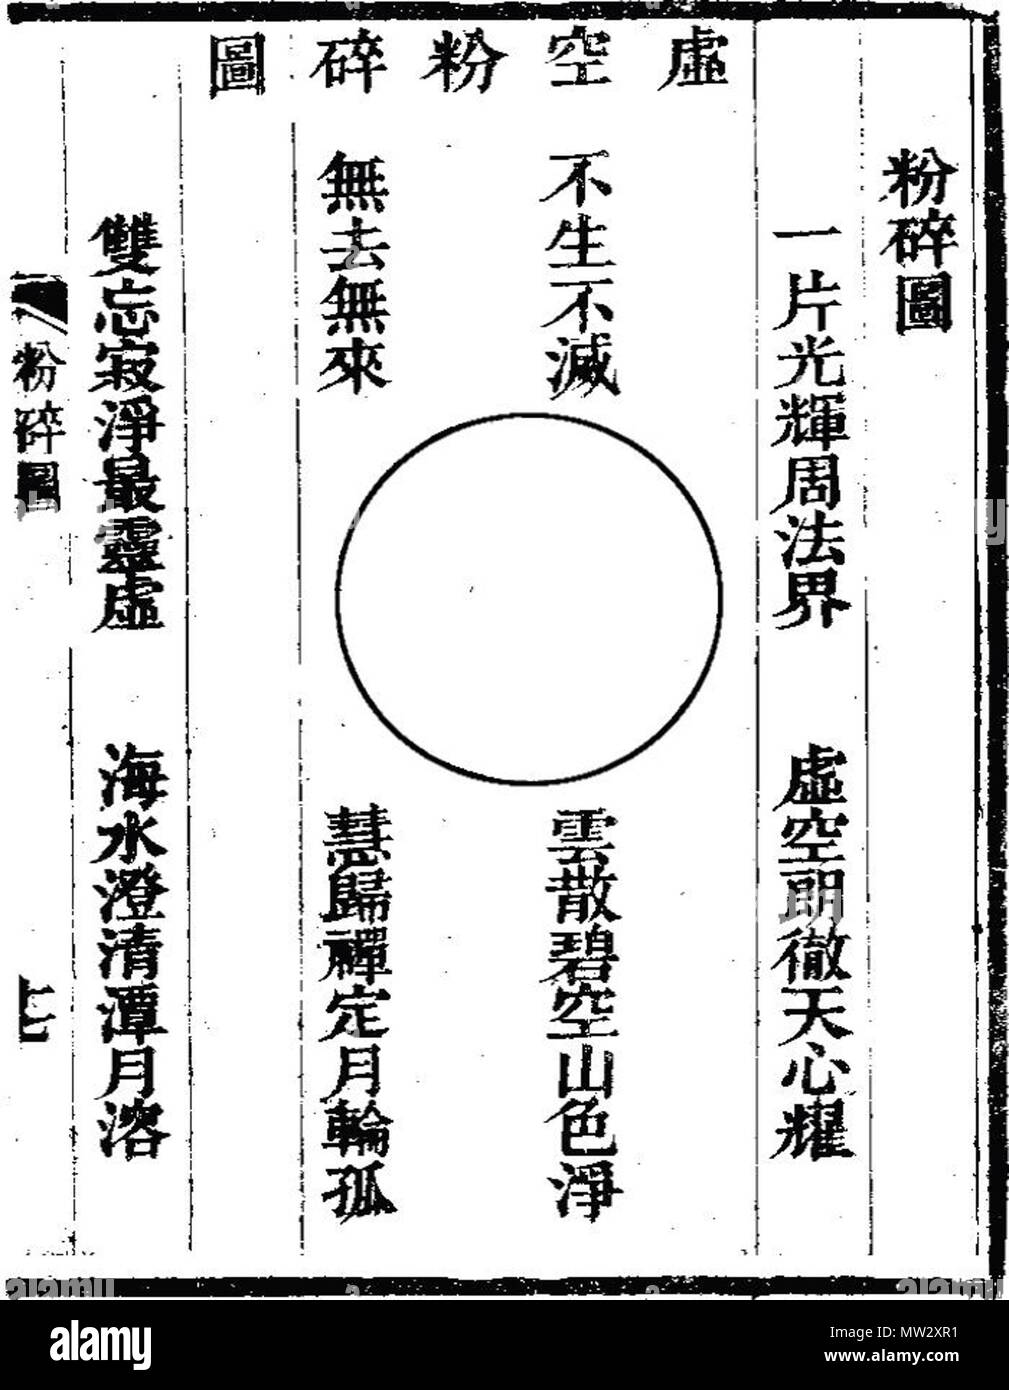 粉碎圖
一片光輝周法界 虛空朗徹天心耀
虛空粉碎圖
不生不滅 雲散碧空山色淨
無去無來 慧歸禪定月輪孤
雙忘寂淨最靈虛 海水澄清潭月溶
粉碎圖
七
alamy
Image ID: MW2XR1
www.alamy.com